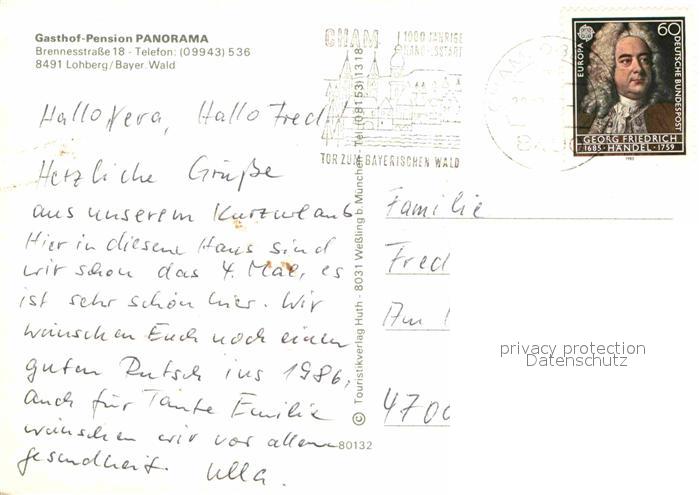 Gasthof-Pension PANORAMA
Brennesstraße 18 - Telefon: (09943) 536
8491 Lohberg/Bayer. Wald
CHAM
1000 JÄHRIGE
TOR ZUM BAYERISCHEN WALD
EUROPA
60
DEUTSCHE BUNDESPOST
GEORG FRIEDRICH
1685 · HÄNDEL · 1759
1985
Hallo Vera, Hallo Fred!
Herzliche Grüße
aus unserem Kurzurlaub
Hier in diesem Haus sind
wir schon das 4. Mal, es
ist sehr schön hier. Wir
wünschen Euch noch einen
guten Rutsch ins 1986,
auch für Tante Emilie
wünschen wir vor allem
gesundheit. Ulla.
© Touristikverlag Huth - 8031 Weßling b. München - Tel. (08153) 1318
80132
Familie
Fred
Am
4700
privacy protection
Datenschutz